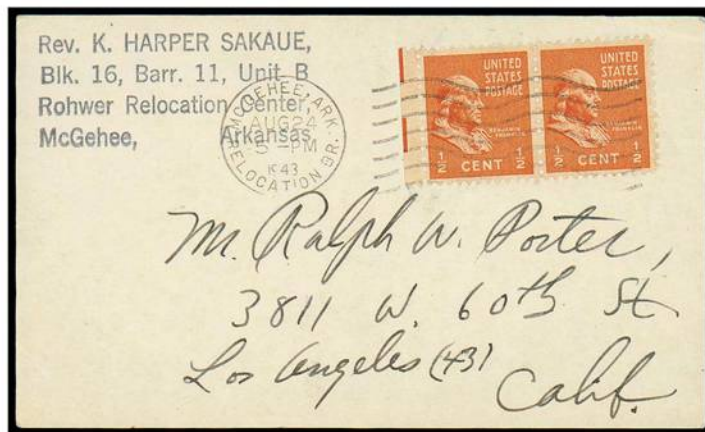 Rev. K. HARPER SAKAUE,
Blk. 16, Barr. 11, Unit B
Rohwer Relocation Center,
McGehee, Arkansas
McGEHEE, ARK.
AUG 24
5 - PM
1943
RELOCATION BR.
UNITED
STATES
POSTAGE
BENJAMIN
FRANKLIN
1/2 CENT 1/2
UNITED
STATES
POSTAGE
BENJAMIN
FRANKLIN
1/2 CENT 1/2
Mr. Ralph W. Porter,
3811 W. 60th St
Los Angeles (43)
Calif.